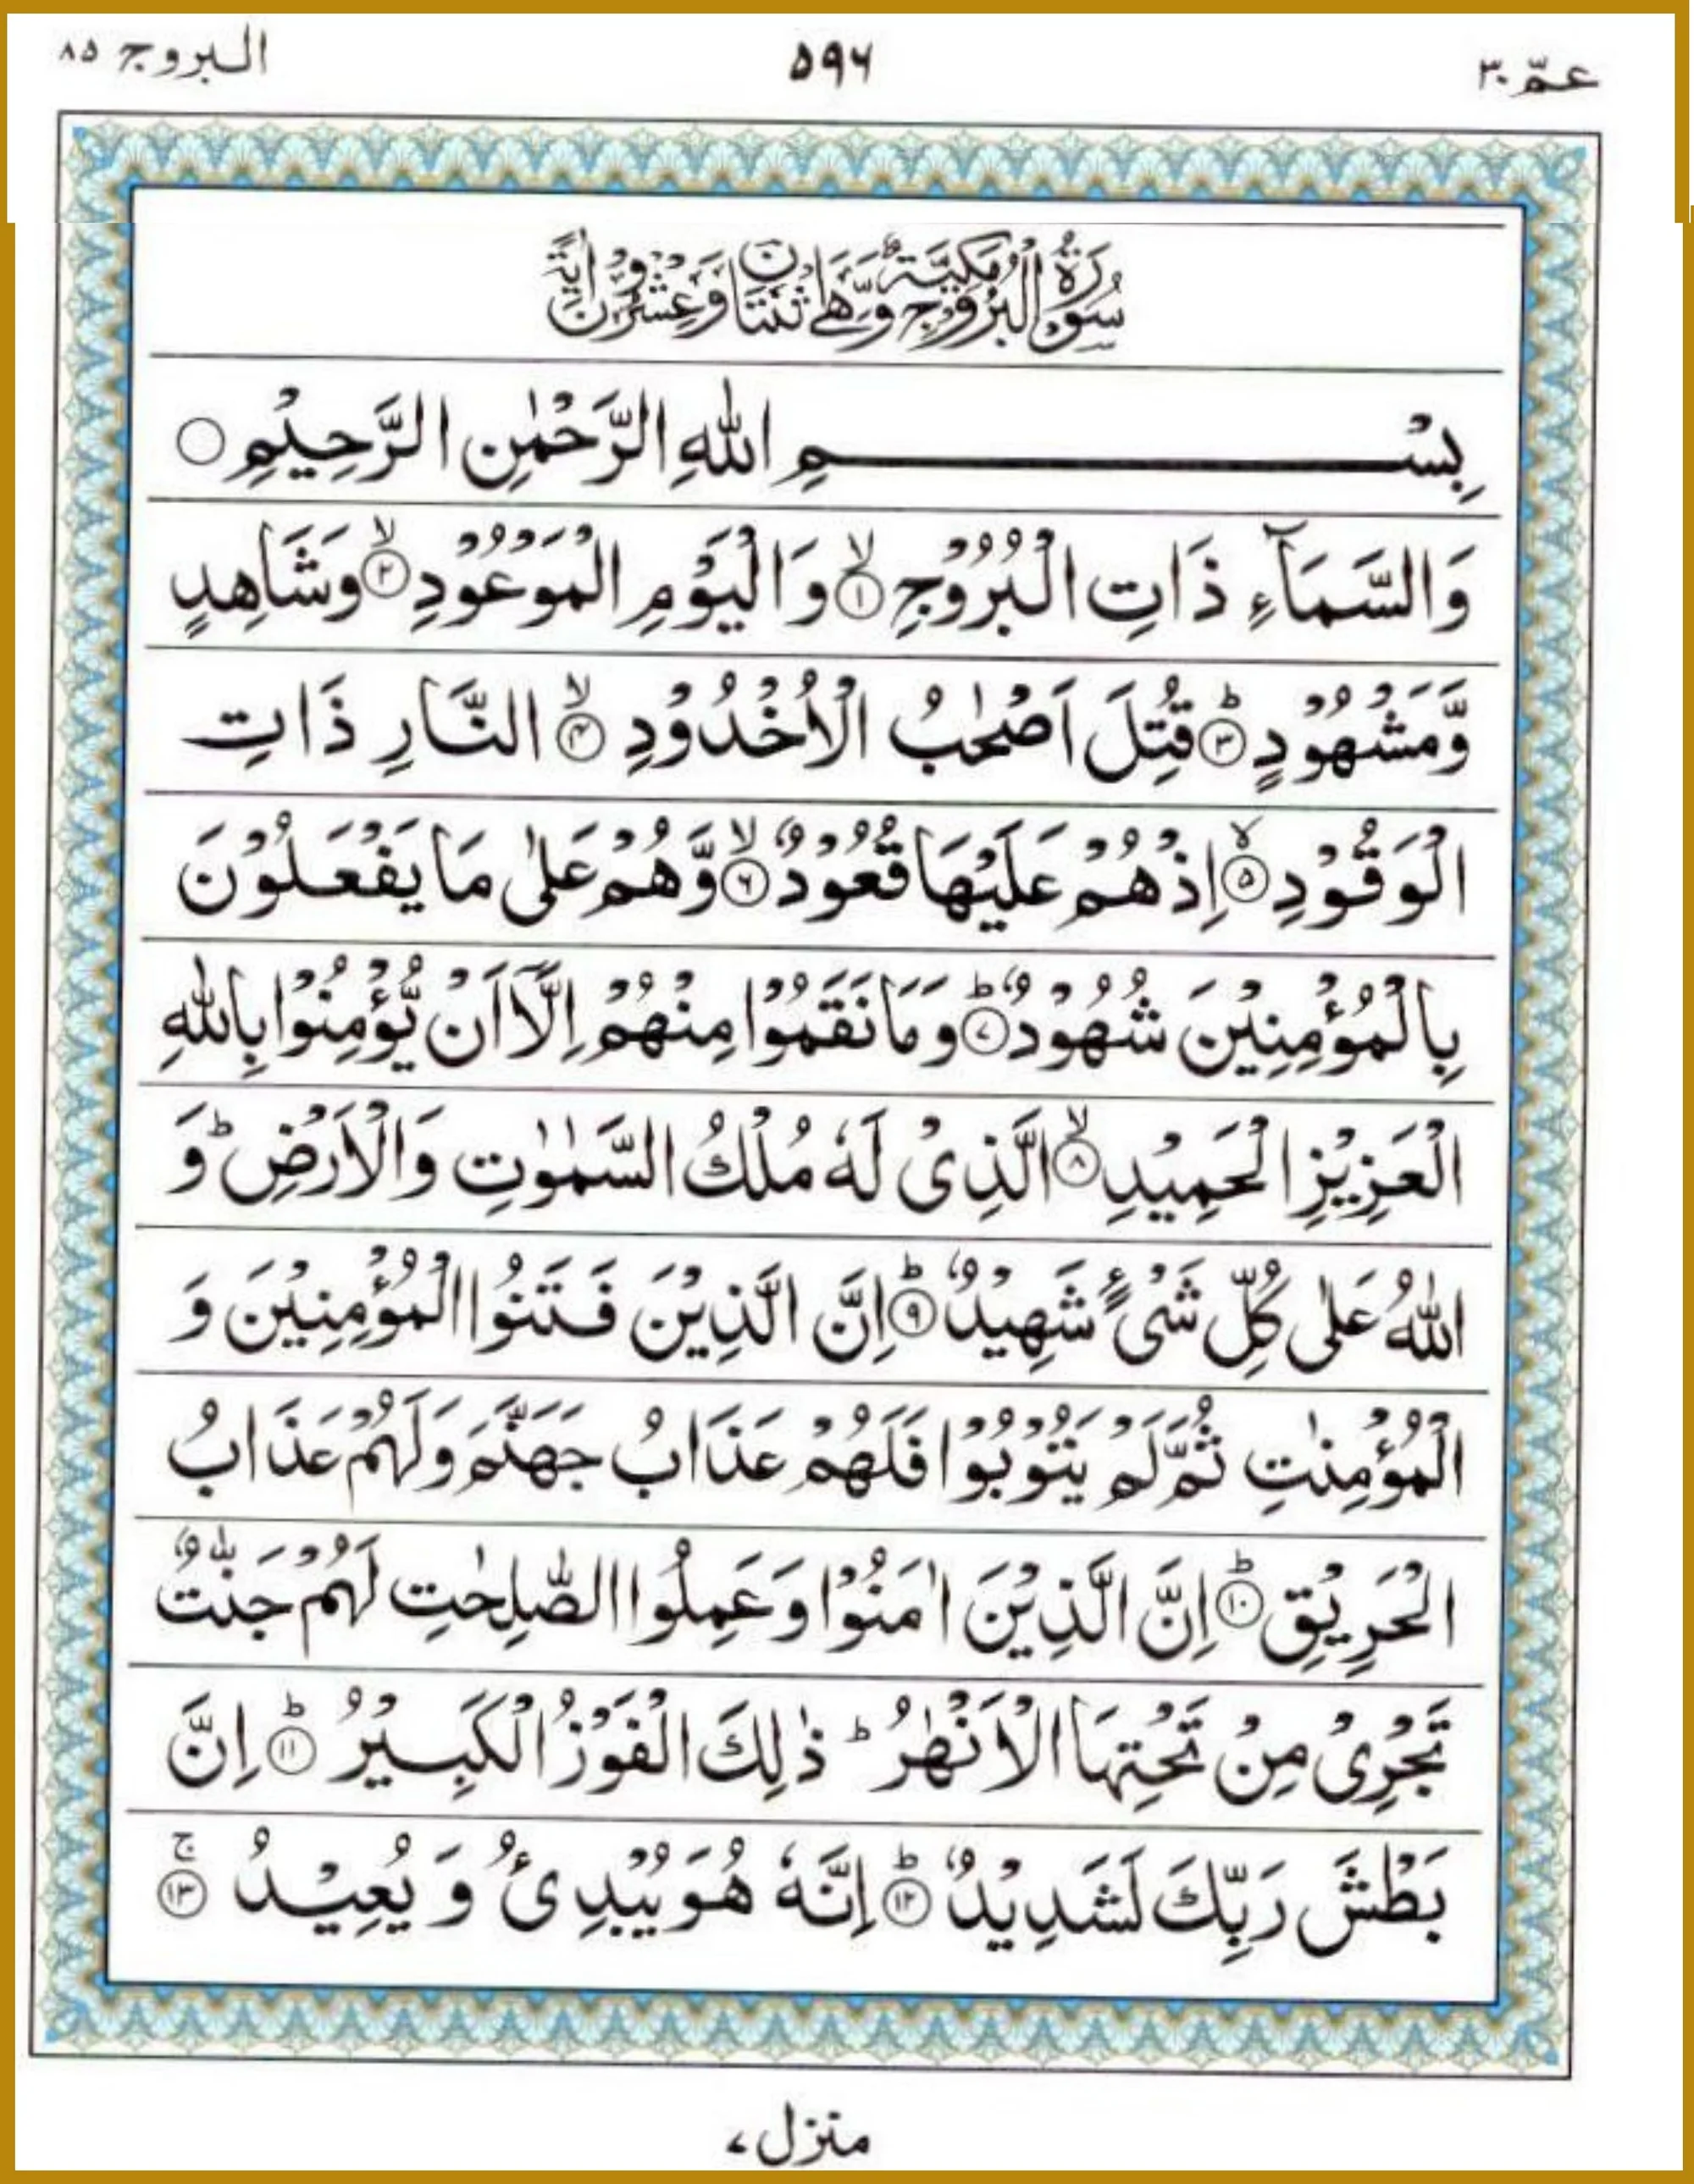 عمّ ٣٠
٥٩٦
البروج ٨٥
سُوْرَةُ الْبُرُوْجِ مَكِّيَّةٌ وَّهِيَ ثِنْتَانِ وَعِشْرُوْنَ اٰيَةً
بِسْــــــــــــمِ اللّٰهِ الرَّحْمٰنِ الرَّحِيْمِ ○
وَالسَّمَآءِ ذَاتِ الْبُرُوْجِ ۙ﴿١﴾ وَالْيَوْمِ الْمَوْعُوْدِ ۙ﴿٢﴾ وَشَاهِدٍ
وَّمَشْهُوْدٍ ؕ﴿٣﴾ قُتِلَ اَصْحٰبُ الْاُخْدُوْدِ ۙ﴿٤﴾ النَّارِ ذَاتِ
الْوَقُوْدِ ۙ﴿٥﴾ اِذْ هُمْ عَلَيْهَا قُعُوْدٌ ۙ﴿٦﴾ وَّهُمْ عَلٰى مَا يَفْعَلُوْنَ
بِالْمُؤْمِنِيْنَ شُهُوْدٌ ؕ﴿٧﴾ وَمَا نَقَمُوْا مِنْهُمْ اِلَّاۤ اَنْ يُّؤْمِنُوْا بِاللّٰهِ
الْعَزِيْزِ الْحَمِيْدِ ۙ﴿٨﴾ الَّذِىْ لَهٗ مُلْكُ السَّمٰوٰتِ وَالْاَرْضِ ؕ وَ
اللّٰهُ عَلٰى كُلِّ شَىْءٍ شَهِيْدٌ ؕ﴿٩﴾ اِنَّ الَّذِيْنَ فَتَنُوا الْمُؤْمِنِيْنَ وَ
الْمُؤْمِنٰتِ ثُمَّ لَمْ يَتُوْبُوْا فَلَهُمْ عَذَابُ جَهَنَّمَ وَلَهُمْ عَذَابُ
الْحَرِيْقِ ؕ﴿١٠﴾ اِنَّ الَّذِيْنَ اٰمَنُوْا وَعَمِلُوا الصّٰلِحٰتِ لَهُمْ جَنّٰتٌ
تَجْرِىْ مِنْ تَحْتِهَا الْاَنْهٰرُ ؕ ذٰلِكَ الْفَوْزُ الْكَبِيْرُ ؕ﴿١١﴾ اِنَّ
بَطْشَ رَبِّكَ لَشَدِيْدٌ ؕ﴿١٢﴾ اِنَّهٗ هُوَ يُبْدِئُ وَ يُعِيْدُ ۚ﴿١٣﴾
منزل ٧